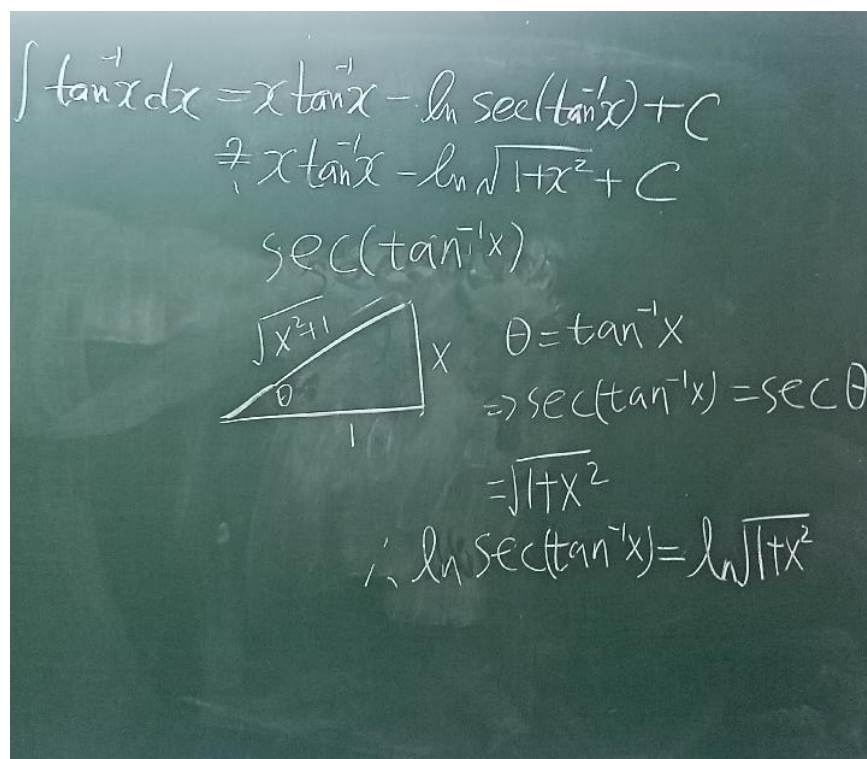 ∫ tan⁻¹x dx = x tan⁻¹x − ln sec(tan⁻¹x) + C
≟ x tan⁻¹x − ln √(1+x²) + C
sec(tan⁻¹x)
√(x²+1)
x
θ
1
θ = tan⁻¹x
⇒ sec(tan⁻¹x) = sec θ
= √(1+x²)
∴ ln sec(tan⁻¹x) = ln √(1+x²)